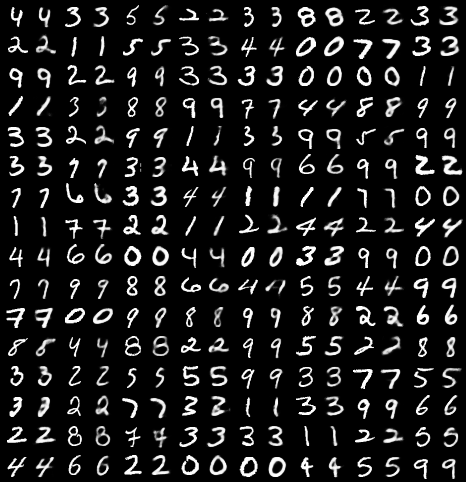 4 4 3 3 5 5 2 2 3 3 8 8 2 2 3 3
2 2 1 1 5 5 3 3 4 4 0 0 7 7 3 3
9 9 2 2 9 9 3 3 3 3 0 0 0 0 1 1
1 1 3 3 8 8 9 9 7 7 4 4 8 8 9 9
3 3 2 2 9 9 1 1 3 3 9 9 5 5 9 9
3 3 7 7 3 3 4 4 9 9 6 6 9 9 2 2
7 7 6 6 3 3 4 4 1 1 1 1 7 7 0 0
1 1 7 7 2 2 1 1 2 2 4 4 2 2 4 4
4 4 6 6 0 0 4 4 0 0 3 3 9 9 0 0
7 7 9 9 8 8 6 6 4 4 5 5 4 4 9 9
7 7 0 0 9 9 8 8 9 9 8 8 2 2 6 6
8 8 4 4 8 8 2 2 9 9 5 5 2 2 8 8
3 3 2 2 5 5 5 5 9 9 3 3 7 7 5 5
3 3 2 2 7 7 3 3 1 1 3 3 9 9 6 6
2 2 8 8 7 7 3 3 3 3 1 1 2 2 5 5
4 4 6 6 2 2 0 0 0 0 4 4 5 5 9 9